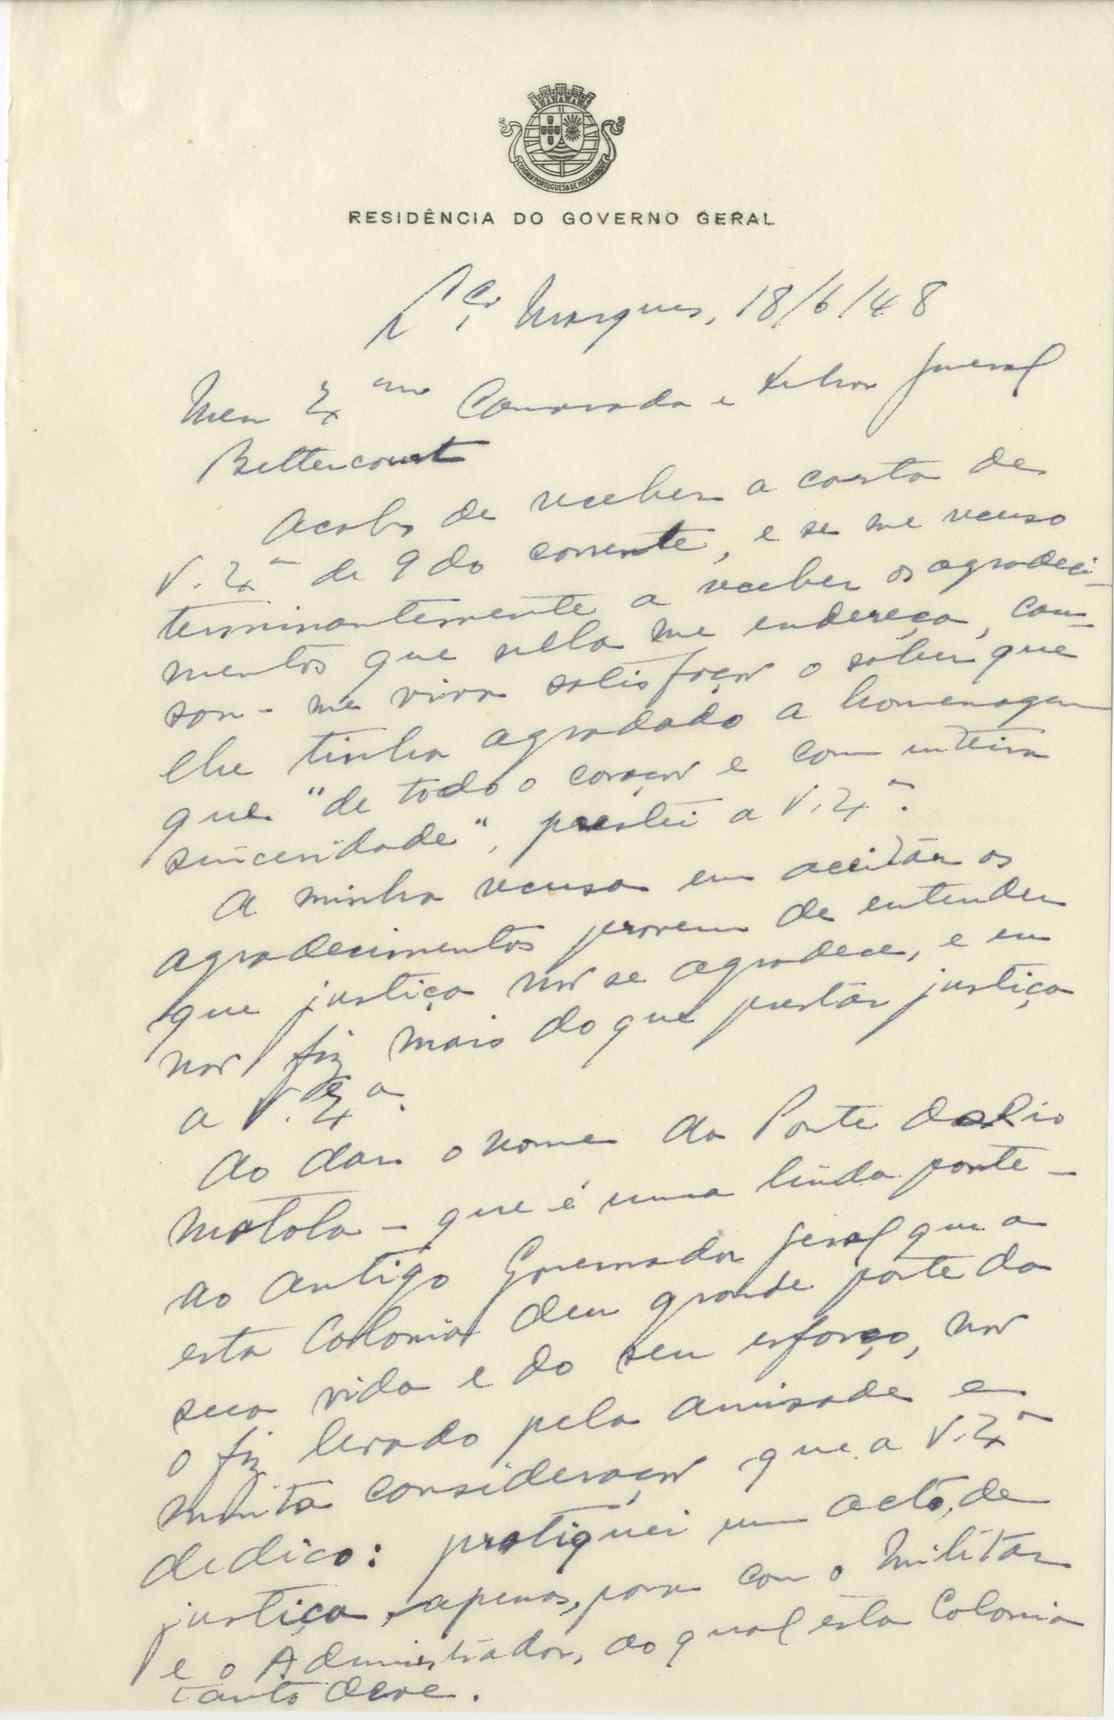 COLÓNIA PORTUGUESA DE MOÇAMBIQUE
RESIDÊNCIA DO GOVERNO GERAL
Lço Marques, 18/6/48
Meu Exmo Camarada e Senhor General
Bettencourt
Acabo de receber a carta de
V. Exa de 9 do corrente, e se me recuso
terminantemente a receber os agradeci-
mentos que nella me endereça, cau-
sou-me viva satisfação o saber que
lhe tinha agradado a homenagem
que "de todo o coração e com inteira
sinceridade", prestei a V. Exa.
A minha recusa em aceitar os
agradecimentos provem de entender
que justiça não se agradece, e eu
não fiz mais do que prestar justiça
a V. Exa.
Ao dar o nome da Ponte do Rio
Matola - que é uma linda ponte -
ao antigo Governador Geral que a
esta Colonia deu grande parte da
sua vida e do seu esforço, não
o fiz levado pela amisade e
muita consideração que a V. Exa
dedico: pratiquei um acto de
justiça, apenas, para com o Militar
e o Administrador, ao qual esta Colonia
tanto deve.